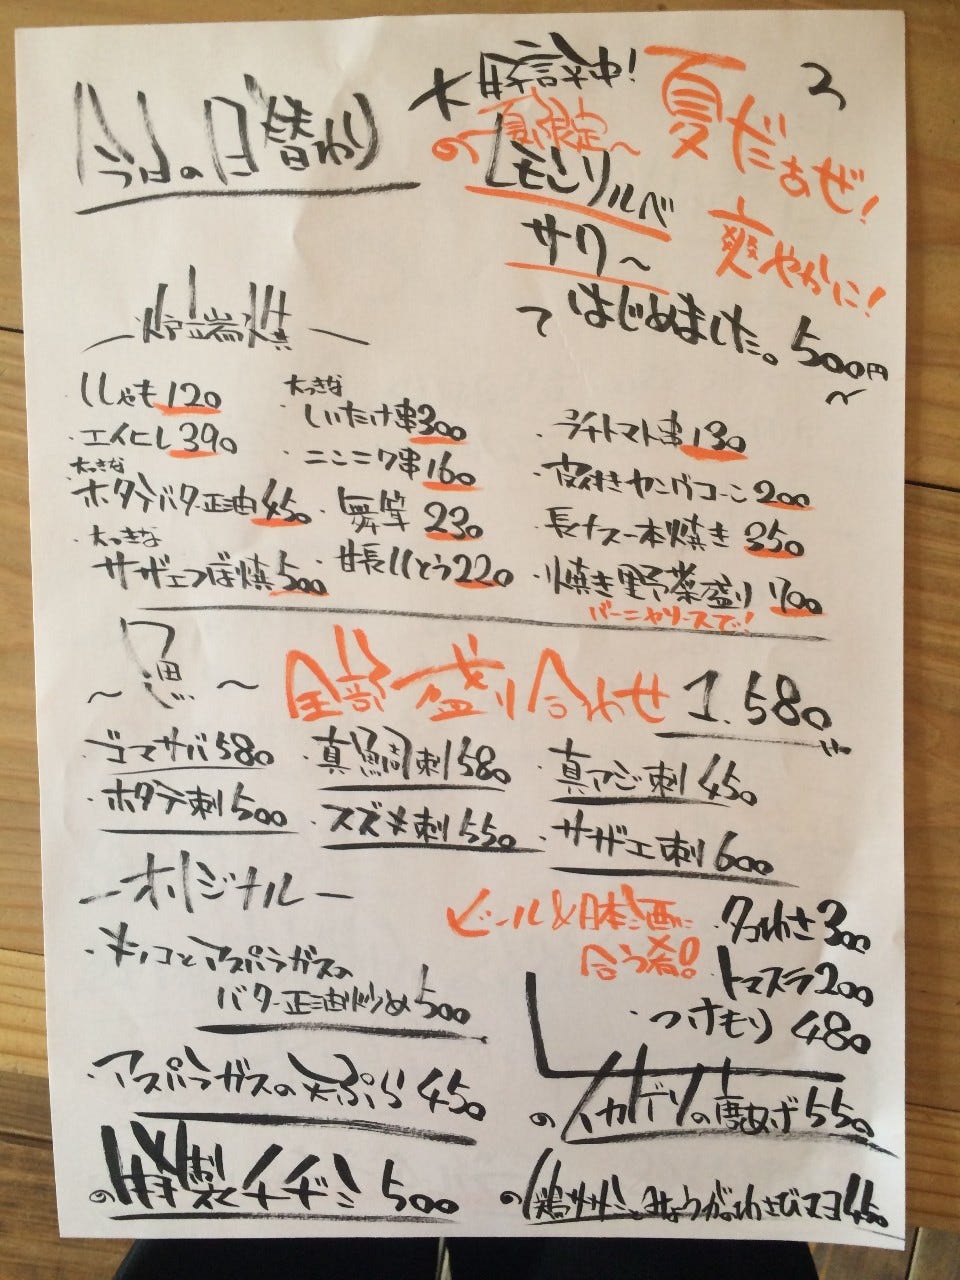 今日の日替わり
大好評中!
夏限定〜
レモンソルベ
サワ〜
夏だぁぜ!
爽やかに!
て はじめました。500円〜
炉端焼
ししゃも 120
・エイヒレ 390
大っきな
ホタテバター正油 450
・大っきな
サザエつぼ焼 500
大っきな
・しいたけ串 300
・ニンニク串 160
・舞茸 230
・甘長しとう 220
・プチトマト串 130
・皮付きヤングコーン 200
・長ナス一本焼き 350
・焼き野菜盛り 700
バーニャソースで!
全部盛り合わせ 1.580
・ゴマサバ 580
・真鯛刺 580
・真アジ刺 450
・ホタテ刺 500
・スズキ刺 550
・サザエ刺 600
オリジナル
・キノコとアスパラガスの
バター正油炒め 500
・アスパラガスの天ぷら 450
チヂミ 500
ビール&日本酒に
合う肴!
タコわさ 300
トマスラ 200
・つけもり 480
イカゲソの唐あげ 550
鶏ササミとみょうがのわさびマヨ 450